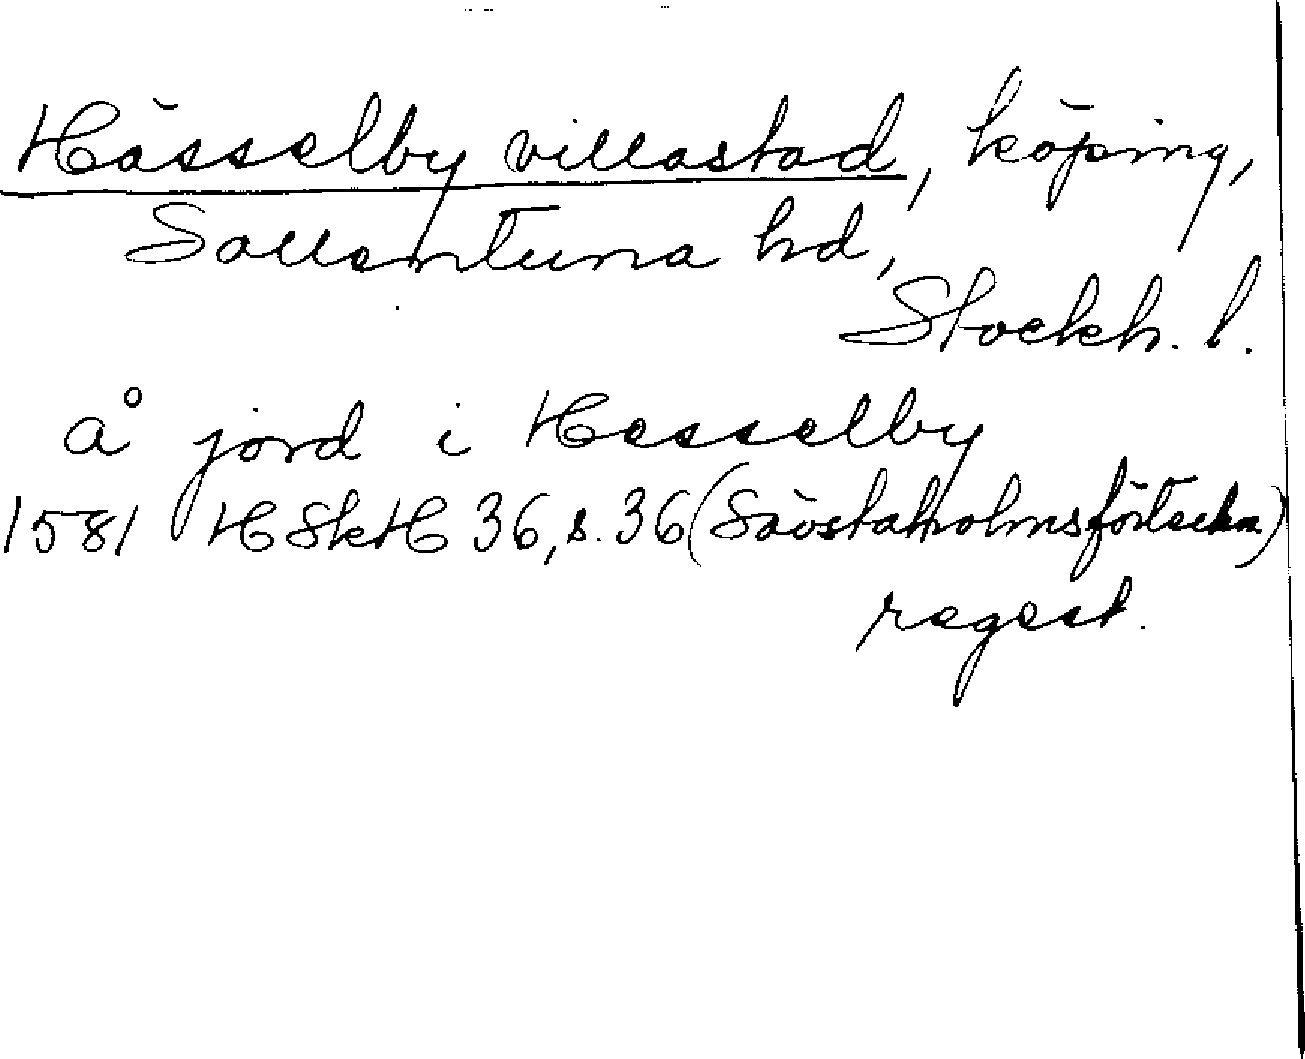 Hässelby villastad, köping,
Sollentuna hd,
Stockh. l.
å jord i Hesselby
1581 HSkH 36, s. 36 (Sävstaholmsförteckn.)
regest.